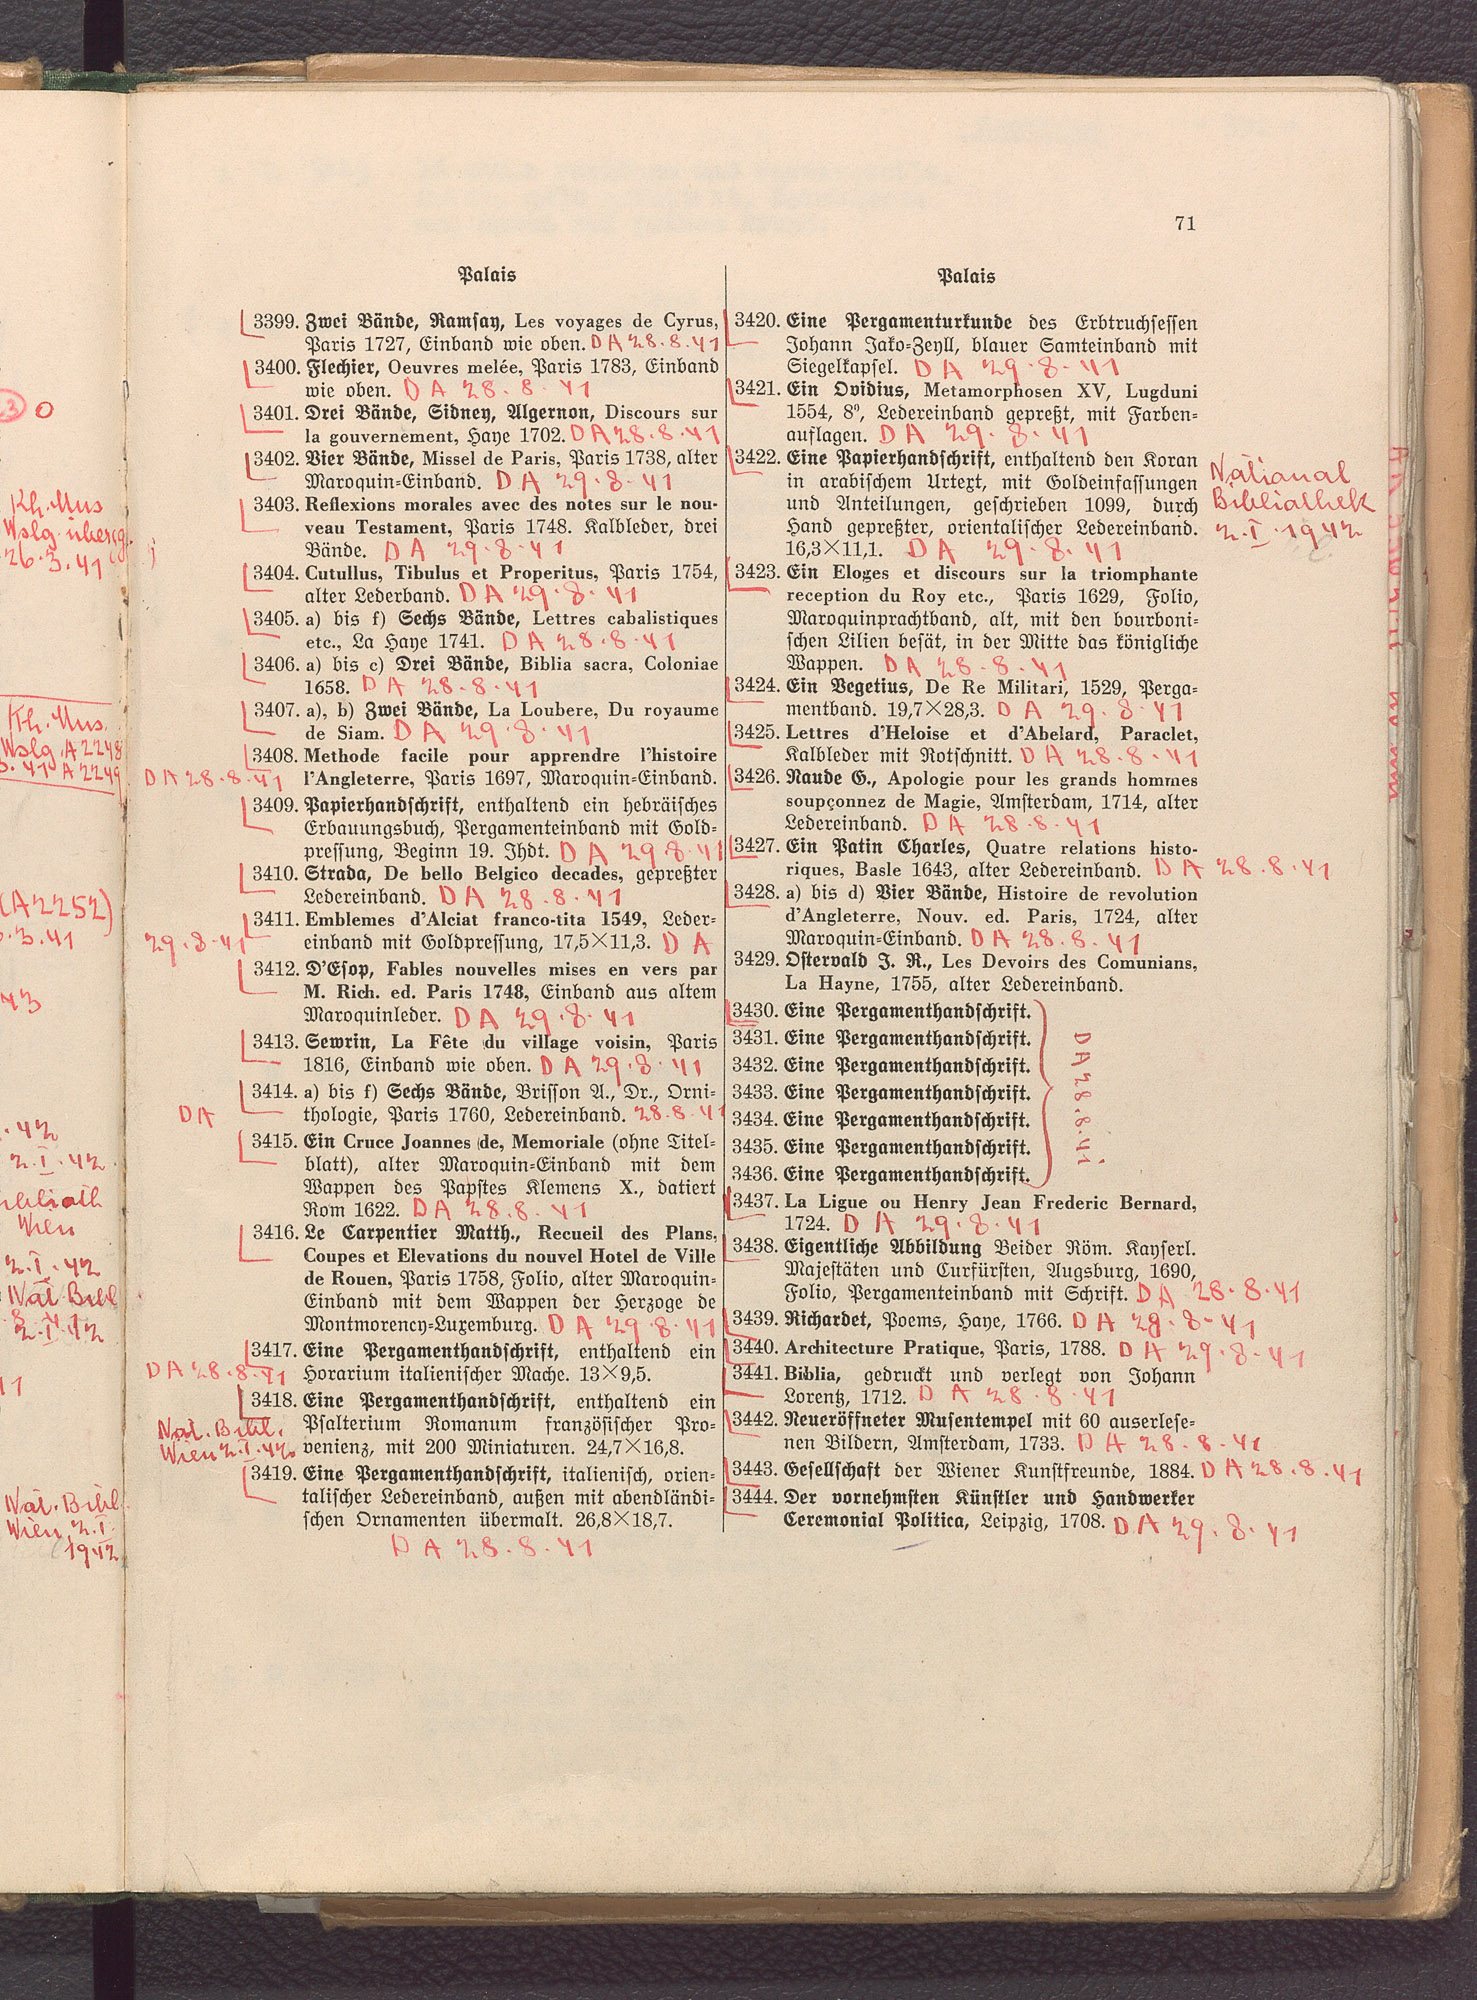 71
Palais
3399. Zwei Bände, Ramsay, Les voyages de Cyrus,
Paris 1727, Einband wie oben. DA 28.8.41
3400. Flechier, Oeuvres melée, Paris 1783, Einband
wie oben. DA 28.8.41
3401. Drei Bände, Sidney, Algernon, Discours sur
la gouvernement, Haye 1702. DA 28.8.41
3402. Vier Bände, Missel de Paris, Paris 1738, alter
Maroquin=Einband. DA 29.8.41
3403. Reflexions morales avec des notes sur le nou-
veau Testament, Paris 1748. Kalbleder, drei
Bände. DA 29.8.41
3404. Cutullus, Tibulus et Properitus, Paris 1754,
alter Lederband. DA 29.8.41
3405. a) bis f) Sechs Bände, Lettres cabalistiques
etc., La Haye 1741. DA 28.8.41
3406. a) bis c) Drei Bände, Biblia sacra, Coloniae
1658. DA 28.8.41
3407. a), b) Zwei Bände, La Loubere, Du royaume
de Siam. DA 29.8.41
3408. Methode facile pour apprendre l'histoire
DA 28.8.41 l'Angleterre, Paris 1697, Maroquin=Einband.
3409. Papierhandschrift, enthaltend ein hebräisches
Erbauungsbuch, Pergamenteinband mit Gold=
pressung, Beginn 19. Jhdt. DA 29.8.41
3410. Strada, De bello Belgico decades, gepreßter
Ledereinband. DA 28.8.41
3411. Emblemes d'Alciat franco-tita 1549, Leder=
29.8.41 einband mit Goldpressung, 17,5×11,3. DA
3412. D'Esop, Fables nouvelles mises en vers par
M. Rich. ed. Paris 1748, Einband aus altem
Maroquinleder. DA 29.8.41
3413. Sewrin, La Fête du village voisin, Paris
1816, Einband wie oben. DA 29.8.41
3414. a) bis f) Sechs Bände, Brisson A., Dr., Orni=
DA thologie, Paris 1760, Ledereinband. 28.8.41
3415. Ein Cruce Joannes de, Memoriale (ohne Titel=
blatt), alter Maroquin=Einband mit dem
Wappen des Papstes Klemens X., datiert
Rom 1622. DA 28.8.41
3416. Le Carpentier Matth., Recueil des Plans,
Coupes et Elevations du nouvel Hotel de Ville
de Rouen, Paris 1758, Folio, alter Maroquin=
Einband mit dem Wappen der Herzoge de
Montmorency=Luxemburg. DA 29.8.41
3417. Eine Pergamenthandschrift, enthaltend ein
DA 28.8.41 Horarium italienischer Mache. 13×9,5.
3418. Eine Pergamenthandschrift, enthaltend ein
Nat. Bibl. Psalterium Romanum französischer Pro=
Wien 2.I.42 venienz, mit 200 Miniaturen. 24,7×16,8.
3419. Eine Pergamenthandschrift, italienisch, orien=
talischer Ledereinband, außen mit abendländi=
schen Ornamenten übermalt. 26,8×18,7.
DA 28.8.41
Palais
3420. Eine Pergamenturkunde des Erbtruchsessen
Johann Jako=Zeyll, blauer Samteinband mit
Siegelkapsel. DA 29.8.41
3421. Ein Ovidius, Metamorphosen XV, Lugduni
1554, 8°, Ledereinband gepreßt, mit Farben=
auflagen. DA 29.8.41
3422. Eine Papierhandschrift, enthaltend den Koran
in arabischem Urtext, mit Goldeinfassungen
und Anteilungen, geschrieben 1099, durch
Hand gepreßter, orientalischer Ledereinband.
16,3×11,1. DA 29.8.41
National
Bibliothek
2.I.1942
3423. Ein Eloges et discours sur la triomphante
reception du Roy etc., Paris 1629, Folio,
Maroquinprachtband, alt, mit den bourboni=
schen Lilien besät, in der Mitte das königliche
Wappen. DA 28.8.41
3424. Ein Vegetius, De Re Militari, 1529, Perga=
mentband. 19,7×28,3. DA 29.8.41
3425. Lettres d'Heloise et d'Abelard, Paraclet,
Kalbleder mit Rotschnitt. DA 28.8.41
3426. Naude G., Apologie pour les grands hommes
soupçonnez de Magie, Amsterdam, 1714, alter
Ledereinband. DA 28.8.41
3427. Ein Patin Charles, Quatre relations histo-
riques, Basle 1643, alter Ledereinband. DA 28.8.41
3428. a) bis d) Vier Bände, Histoire de revolution
d'Angleterre, Nouv. ed. Paris, 1724, alter
Maroquin=Einband. DA 28.8.41
3429. Ostervald J. R., Les Devoirs des Comunians,
La Hayne, 1755, alter Ledereinband.
3430. Eine Pergamenthandschrift.
3431. Eine Pergamenthandschrift.
3432. Eine Pergamenthandschrift.
3433. Eine Pergamenthandschrift.
3434. Eine Pergamenthandschrift.
3435. Eine Pergamenthandschrift.
3436. Eine Pergamenthandschrift.
DA 28.8.41
3437. La Ligue ou Henry Jean Frederic Bernard,
1724. DA 29.8.41
3438. Eigentliche Abbildung Beider Röm. Kayserl.
Majestäten und Curfürsten, Augsburg, 1690,
Folio, Pergamenteinband mit Schrift. DA 28.8.41
3439. Richardet, Poems, Haye, 1766. DA 28.8.41
3440. Architecture Pratique, Paris, 1788. DA 29.8.41
3441. Biblia, gedruckt und verlegt von Johann
Lorentz, 1712. DA 28.8.41
3442. Neueröffneter Musentempel mit 60 auserlese=
nen Bildern, Amsterdam, 1733. DA 28.8.41
3443. Gesellschaft der Wiener Kunstfreunde, 1884. DA 28.8.41
3444. Der vornehmsten Künstler und Handwerker
Ceremonial Politica, Leipzig, 1708. DA 29.8.41
Kh. Mus
Wslg. überg.
26.3.41
Kh. Mus.
Wslg. A 2248
A 2249
(A2252)
3.41
2.I.42
Wien
2.I.42
Nat. Bibl
2.I.42
Nat. Bibl.
Wien 2.I.
1942